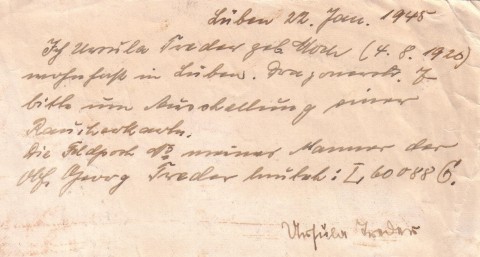 Lüben 22. Jan. 1945
Ich Ursula Treder geb. Koch (4. 8. 1920)
wohnhaft in Lüben. Dragonerstr. 7
bitte um Ausstellung einer
Raucherkarte.
Die Feldpost № meines Mannes des
Georg Treder lautet: L 60088 
Ursula Treder